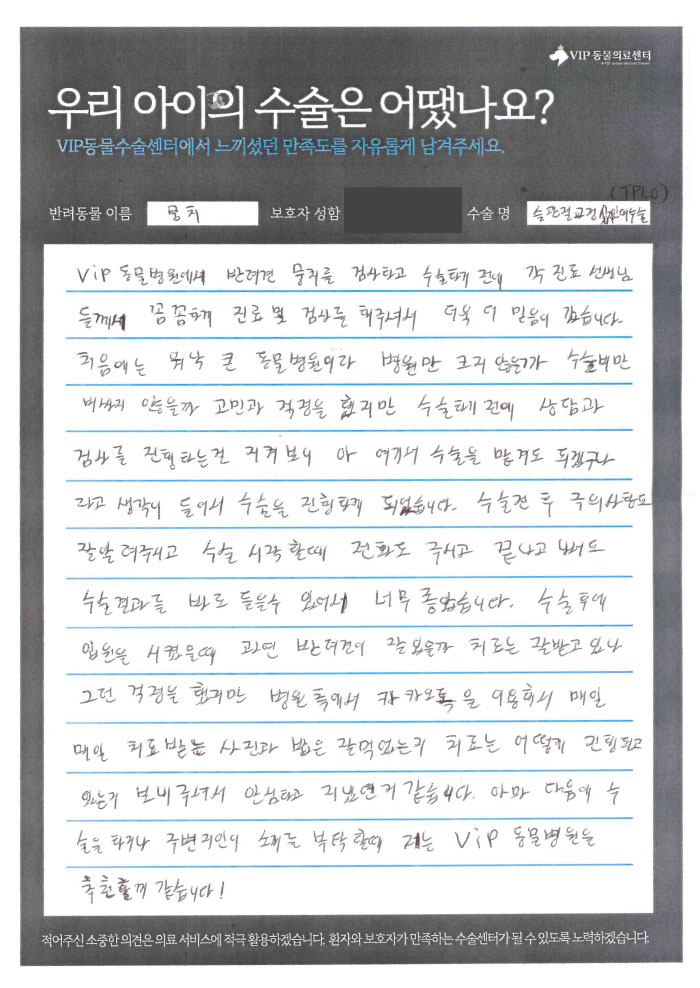 VIP 동물의료센터
우리 아이의 수술은 어땠나요?
VIP동물수술센터에서 느끼셨던 만족도를 자유롭게 남겨주세요.
(TPLO)
반려동물 이름 뭉치 보호자 성함 수술 명 슬관절교정 수술
VIP 동물병원에서 반려견 뭉치를 검사하고 수술하기 전에 각 진료 선생님
들께서 꼼꼼하게 진료 및 검사를 해주셔서 더욱 더 믿음이 갔습니다.
처음에는 워낙 큰 동물병원이라 병원만 크지 않을까 수술비만
비싸지 않을까 고민과 걱정을 했지만 수술하기 전에 상담과
검사를 진행하는걸 지켜보니 아 여기서 수술을 맡겨도 되겠구나
라고 생각이 들어서 수술을 진행하게 되었습니다. 수술전 후 주의사항도
잘알려주시고 수술 시작할때 전화도 주시고 끝나고 나서도
수술결과를 바로 들을수 있어서 너무 좋았습니다. 수술후에
입원을 시켰을때 과연 반려견이 잘있을까 치료는 잘받고 있나
그런 걱정을 했지만 병원측에서 카카오톡을 이용해서 매일
매일 치료받는 사진과 밥은 잘먹었는지 치료는 어떻게 진행되고
있는지 보내주셔서 안심하고 지냈던거 같습니다. 아마 다음에 수
술을 하거나 주변지인이 소개를 부탁할때 저는 VIP 동물병원을
추천할꺼 같습니다!
적어주신 소중한 의견은 의료 서비스에 적극 활용하겠습니다. 환자와 보호자가 만족하는 수술센터가 될 수 있도록 노력하겠습니다.